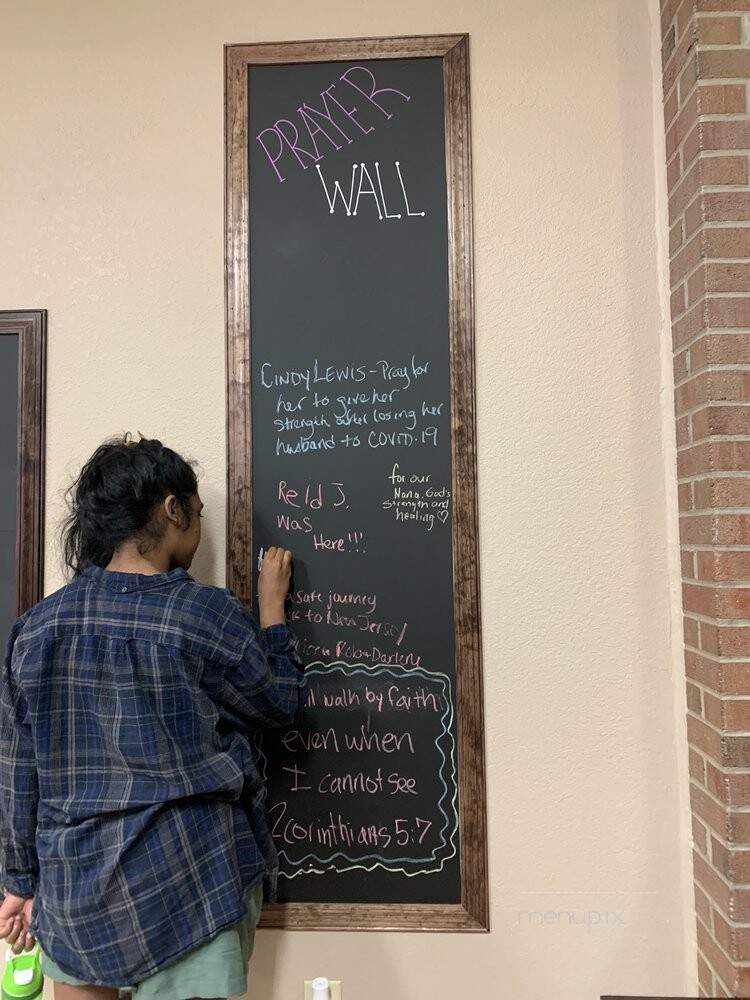 PRAYER
WALL
CINDY LEWIS - Pray for
her to give her
strength after losing her
husband to COVID-19
for our
Nana. God's
strength and
healing ♡
Reid J.
was
Here!!!
safe journey
to New Jersey
Rob + Darlene
walk by faith
even when
I cannot see
2 Corinthians 5:7
menupix